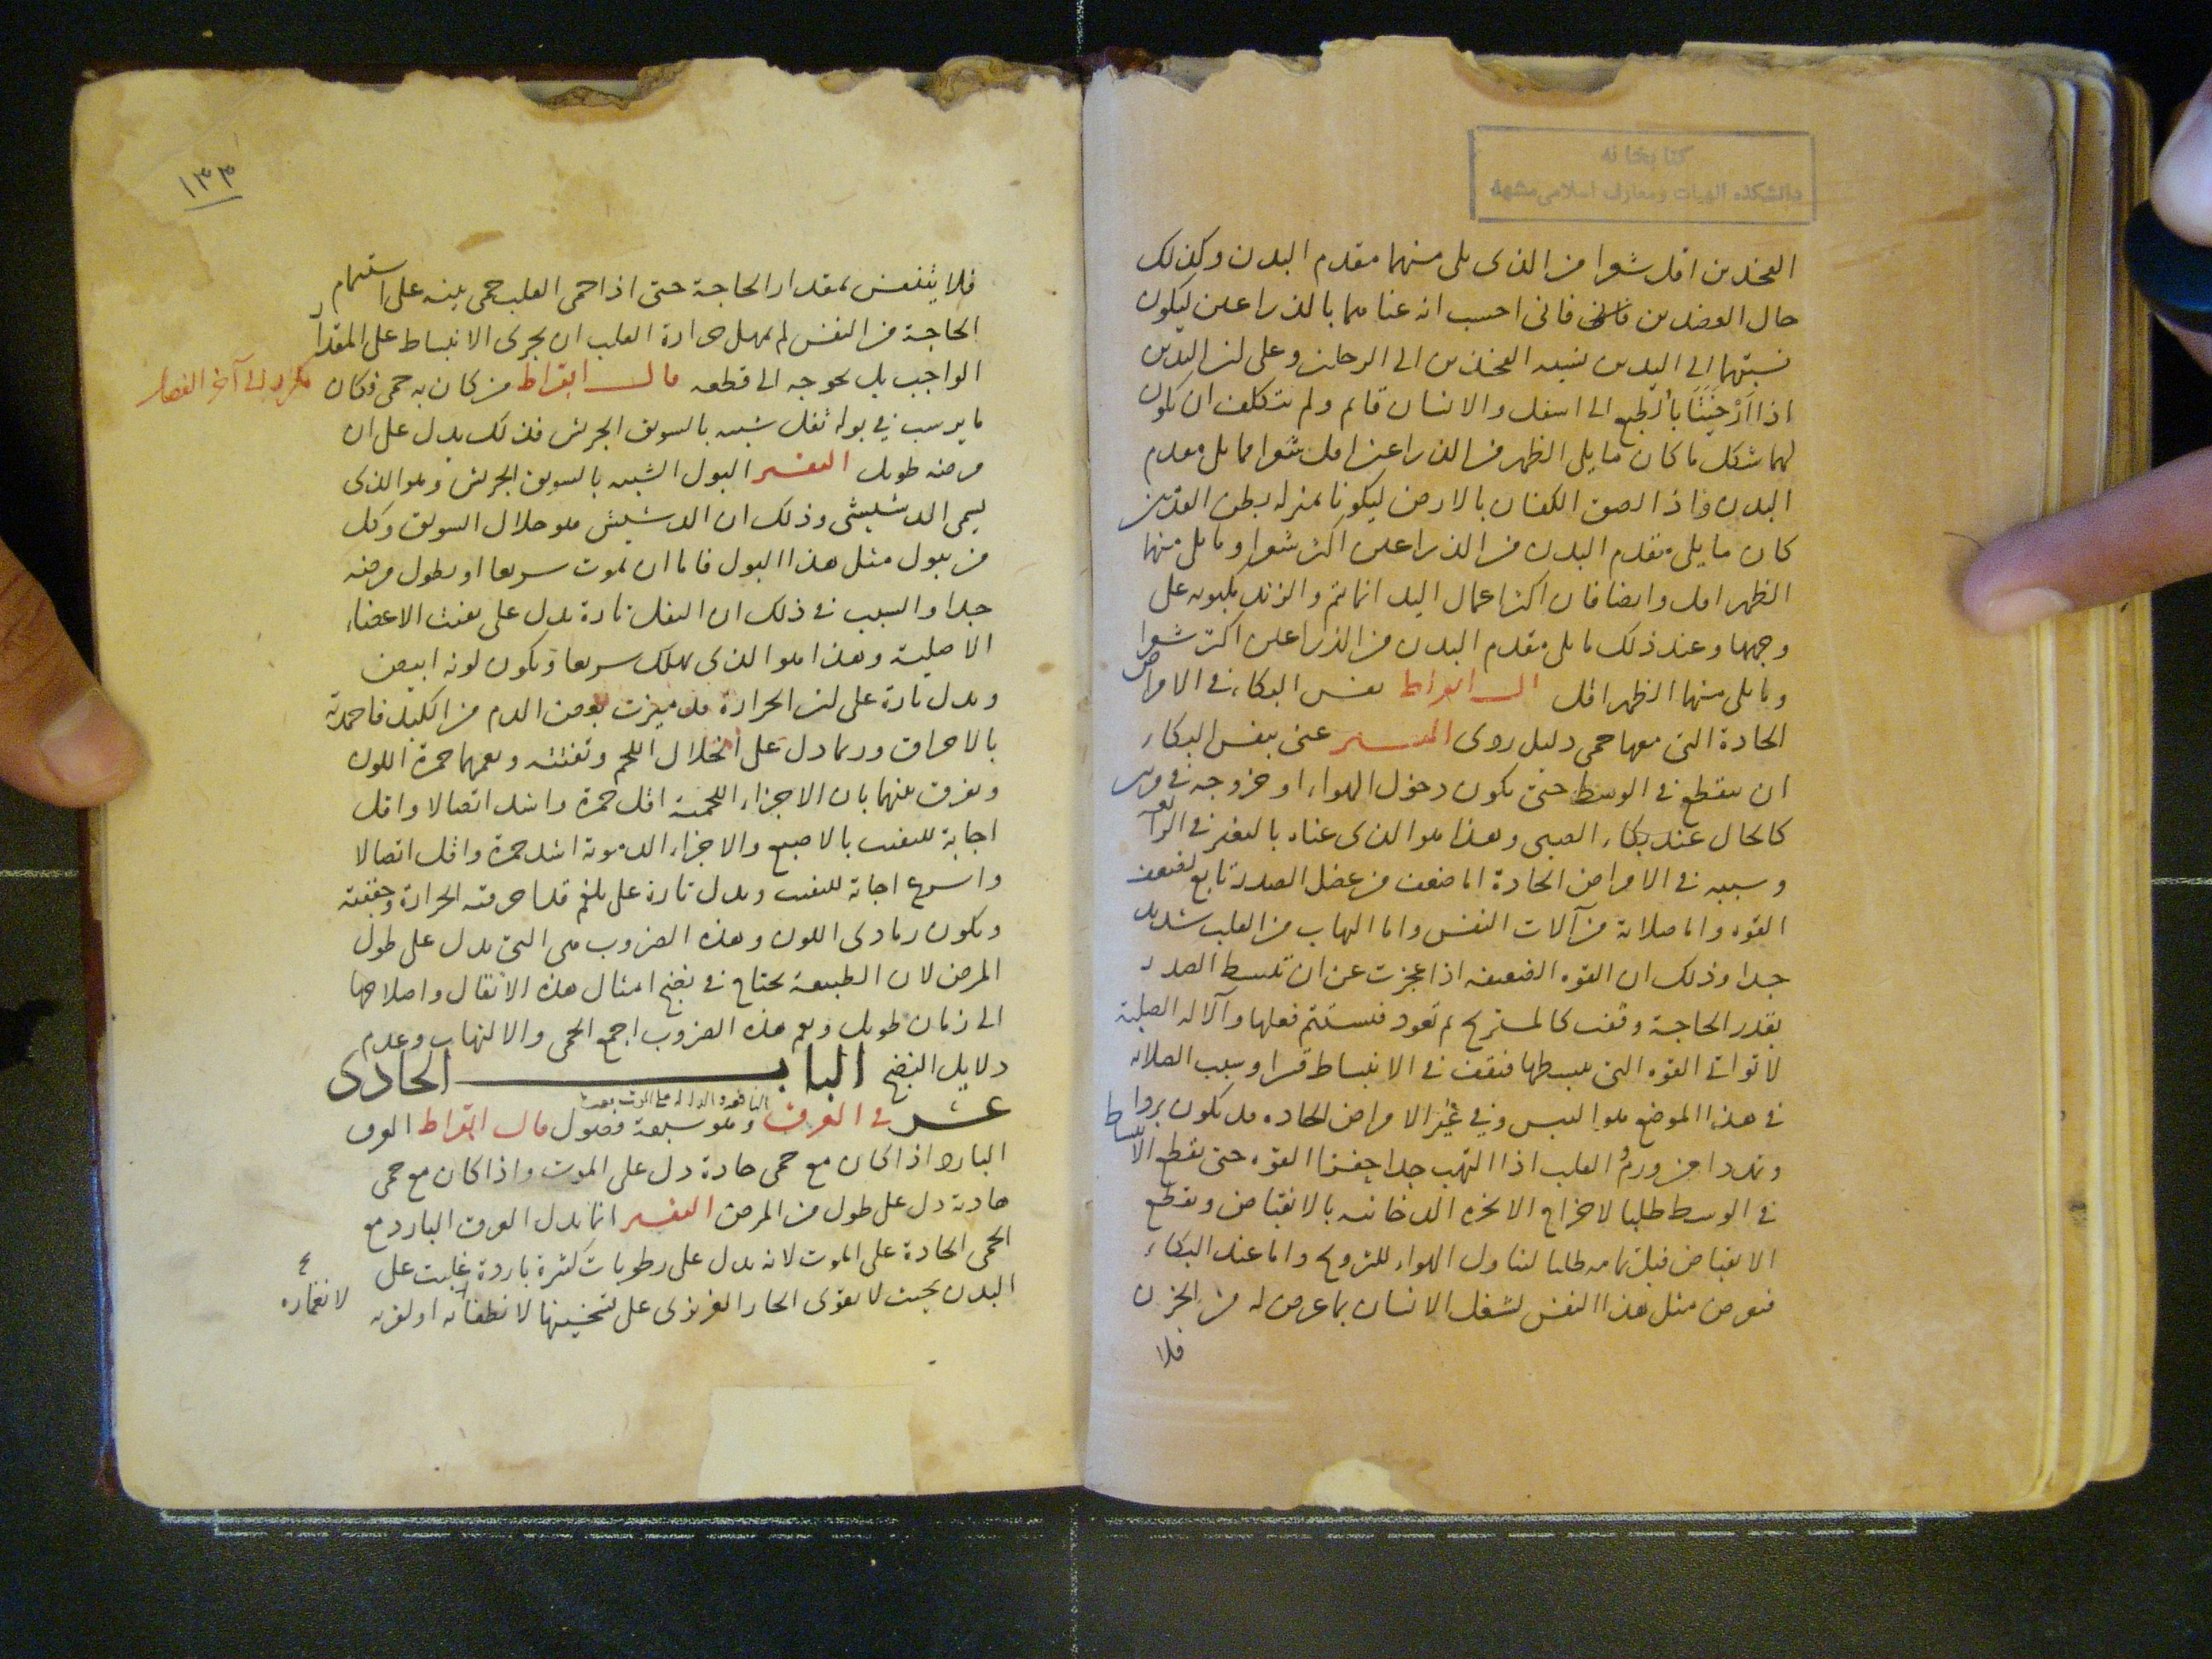 كتابخانه
دانشكده الهيات ومعارف اسلامى مشهد
الفخذين اقل شعرا من الذى يلى منهما مقدم البدن وكذلك
حال العضدين فانى احسب انه عنا بهما بالذراعين ليكون
نسبتهما الى اليدين نسبه الفخذين الى الرجلين وعلى ان اليدين
اذا اُرْخِيَتَا بالطبع الى اسفل والانسان قايم ولم يتكلف ان يكون
لهما شكل ما كان ما يلى الظهر من الذراعين اقل شعرا مما يلى مقدم
البدن واذا الصق الكفان بالارض ليكونا بمنزله بطن القدمين
كان ما يلى مقدم البدن من الذراعين اكثر شعرا وما يلى منهما
الظهر اقل وايضا فان اكثر اعمال اليد انما تتم والزند مكبوبه على
وجهها وعند ذلك ما يلى مقدم البدن من الذراعين اكثر شعرا
وما يلى منهما الظهر اقل ال ابقراط نفس البكاء فى الامراض
الحادة التى معها حمى دليل ردى التفسير عنى بنفس البكاء
ان ينقطع فى الوسط حتى يكون دخول الهواء او خروجه فى مرتين
كالحال عند بكاء الصبى وهذا هو الذى عناه بالتغير فى
وسببه فى الامراض الحادة اما ضعف من عضل الصدر تابع لضعف
القوه واما صلابة من آلات النفس واما التهاب من القلب شديد
جدا وذلك ان القوه الضعيفه اذا عجزت عن ان تبسط الصدر
بقدر الحاجة وقفت كالمستريح ثم تعود فتستتم فعلها والآله الصلبة
لا تواتى القوه التى تبسطها فتقف فى الانبساط قسرا وسبب الصلابه
فى هذا الموضع هو اليبس وفى غير الامراض الحاده قد يكون بردا
وتمددا من ورم والقلب اذا التهب جدا حفز القوه حتى تقطع الانبساط
فى الوسط طلبا لاخراج الابخره الدخانيه بالانقباض وتقطع
الانقباض قبل تمامه طلبا لتناول الهواء للتروح واما عند البكاء
فيعرض مثل هذا النفس لشغل الانسان بما عرض له من الحزن
فلا
١٣٣
فلا يتنفس بمقدار الحاجة حتى اذا حمى القلب حمى ينبه على استتمام
الحاجة من النفس لم يمهل حرارة القلب ان يجرى الانبساط على المقدار
الواجب بل يحوجه الى قطعه قال ابقراط من كان به حمى فكان
ما يرسب فى بوله ثفل شبيه بالسويق الجريش فذلك يدل على ان
مرضه طويل التفسير البول الشبيه بالسويق الجريش وهو الذى
يسمى الدشيشى وذلك ان الدشيش هو حلال السويق وكل
من يبول مثل هذا البول فاما ان يموت سريعا او يطول مرضه
جدا والسبب فى ذلك ان الثفل تارة يدل على تفتت الاعضاء
الاصلية وهذا هو الذى يهلك سريعا ويكون لونه ابيض
ويدل تارة على ان الحرارة قد ميزت بعض الدم من الكبد فاجمدته
بالاحراق وربما دل على انحلال اللحم وتفتته ويعمهما حمرة اللون
ويفرق بينهما بان الاجزاء اللحمية اقل حمرة واشد اتصالا واقل
اجابة للتفتت بالاصبع والاجزاء الدموية اشد حمرة واقل اتصالا
واسرع اجابة للتفتت ويدل تارة على بلغم قد احرقته الحرارة وجففته
ويكون رمادى اللون وهذه الضروب هى التى يدل على طول
المرض لان الطبيعة تحتاج فى نضج امثال هذه الاثفال واصلاحها
الى زمان طويل ويعم هذه الضروب اجمع الحمى والالتهاب وعدم
دلايل النضج الباب الحادى
عشر فى العرق وهو سبعة فصول قال ابقراط العرق
البارد اذا كان مع حمى حادة دل على الموت واذا كان مع حمى
هادية دل على طول من المرض التفسير انما يدل العرق البارد مع
الحمى الحادة على الموت لانه يدل على رطوبات كثيرة باردة غلبت على
البدن بحيث لا يقوى الحار الغريزى على تسخينها لانطفائه او لقربه
لانغماره